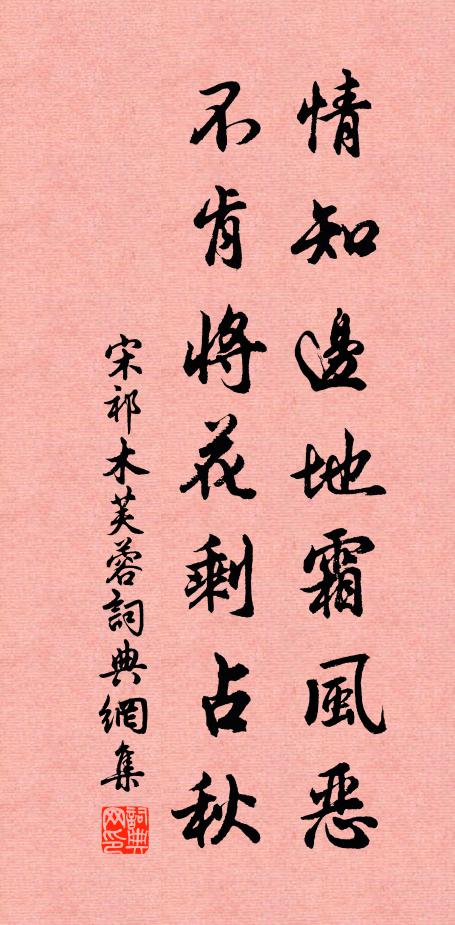 情知邊地霜風惡
不肯將花剩占秋
宋祁木芙蓉詞典網集
詞典网印